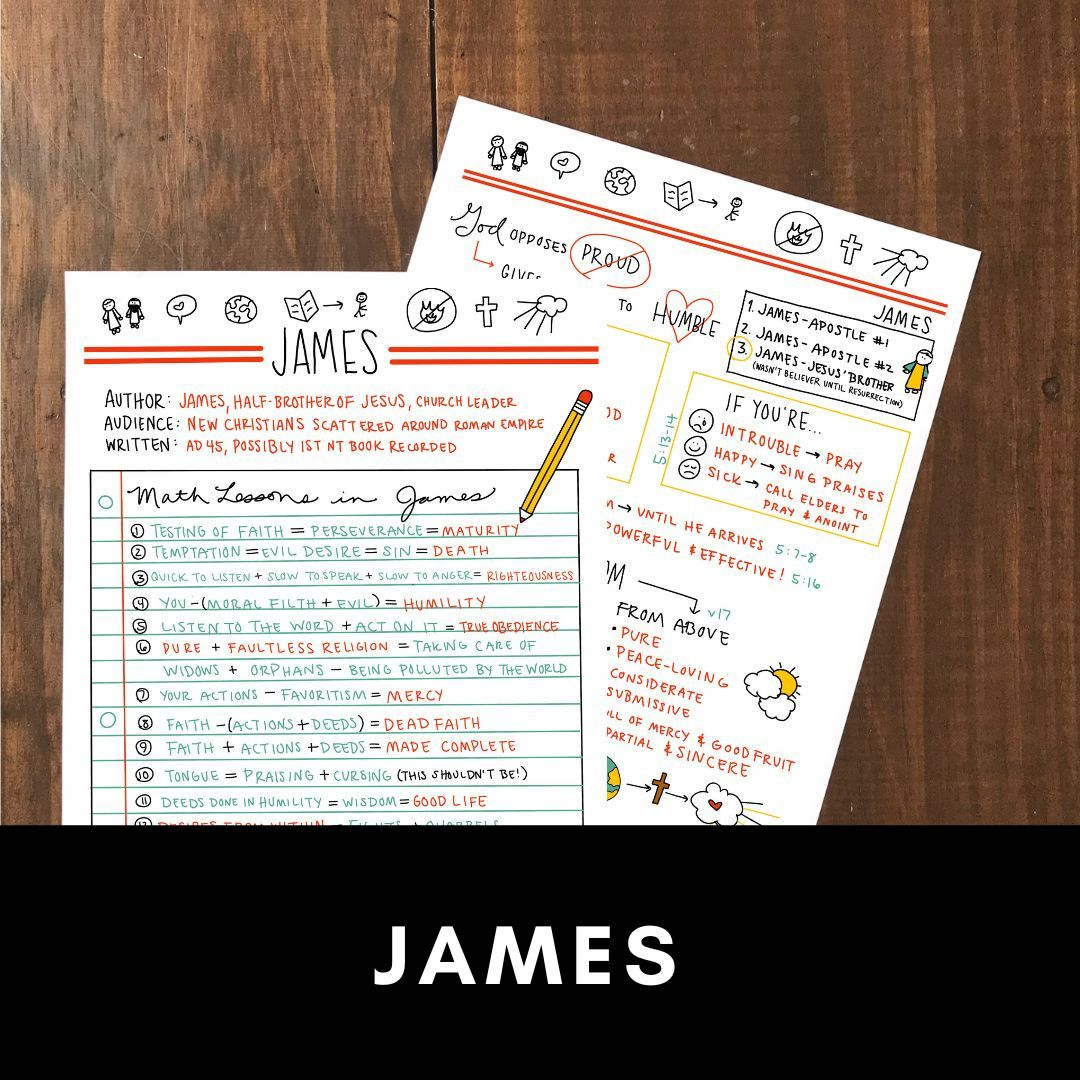 JAMES
AUTHOR: JAMES, HALF-BROTHER OF JESUS, CHURCH LEADER
AUDIENCE: NEW CHRISTIANS SCATTERED AROUND ROMAN EMPIRE
WRITTEN: AD 45, POSSIBLY 1ST NT BOOK RECORDED
Math Lessons in James
1 TESTING OF FAITH = PERSEVERANCE = MATURITY
2 TEMPTATION = EVIL DESIRE = SIN = DEATH
3 QUICK TO LISTEN + SLOW TO SPEAK + SLOW TO ANGER = RIGHTEOUSNESS
4 YOU - (MORAL FILTH + EVIL) = HUMILITY
5 LISTEN TO THE WORD + ACT ON IT = TRUE OBEDIENCE
6 PURE + FAULTLESS RELIGION = TAKING CARE OF
WIDOWS + ORPHANS - BEING POLLUTED BY THE WORLD
7 YOUR ACTIONS - FAVORITISM = MERCY
8 FAITH - (ACTIONS + DEEDS) = DEAD FAITH
9 FAITH + ACTIONS + DEEDS = MADE COMPLETE
10 TONGUE = PRAISING + CURSING (THIS SHOULDN'T BE!)
11 DEEDS DONE IN HUMILITY = WISDOM = GOOD LIFE
12 DESIRES FROM WITHIN = FIGHTS + QUARRELS
God OPPOSES PROUD
GIVES
TO HUMBLE
JAMES
1. JAMES - APOSTLE #1
2. JAMES - APOSTLE #2
3. JAMES - JESUS' BROTHER
(WASN'T BELIEVER UNTIL RESURRECTION)
IF YOU'RE...
IN TROUBLE → PRAY
HAPPY → SING PRAISES
SICK → CALL ELDERS TO
PRAY & ANOINT
5:13-14
→ UNTIL HE ARRIVES 5:7-8
POWERFUL & EFFECTIVE! 5:16
v17
FROM ABOVE
• PURE
• PEACE-LOVING
CONSIDERATE
SUBMISSIVE
OF MERCY & GOOD FRUIT
PARTIAL & SINCERE
JAMES